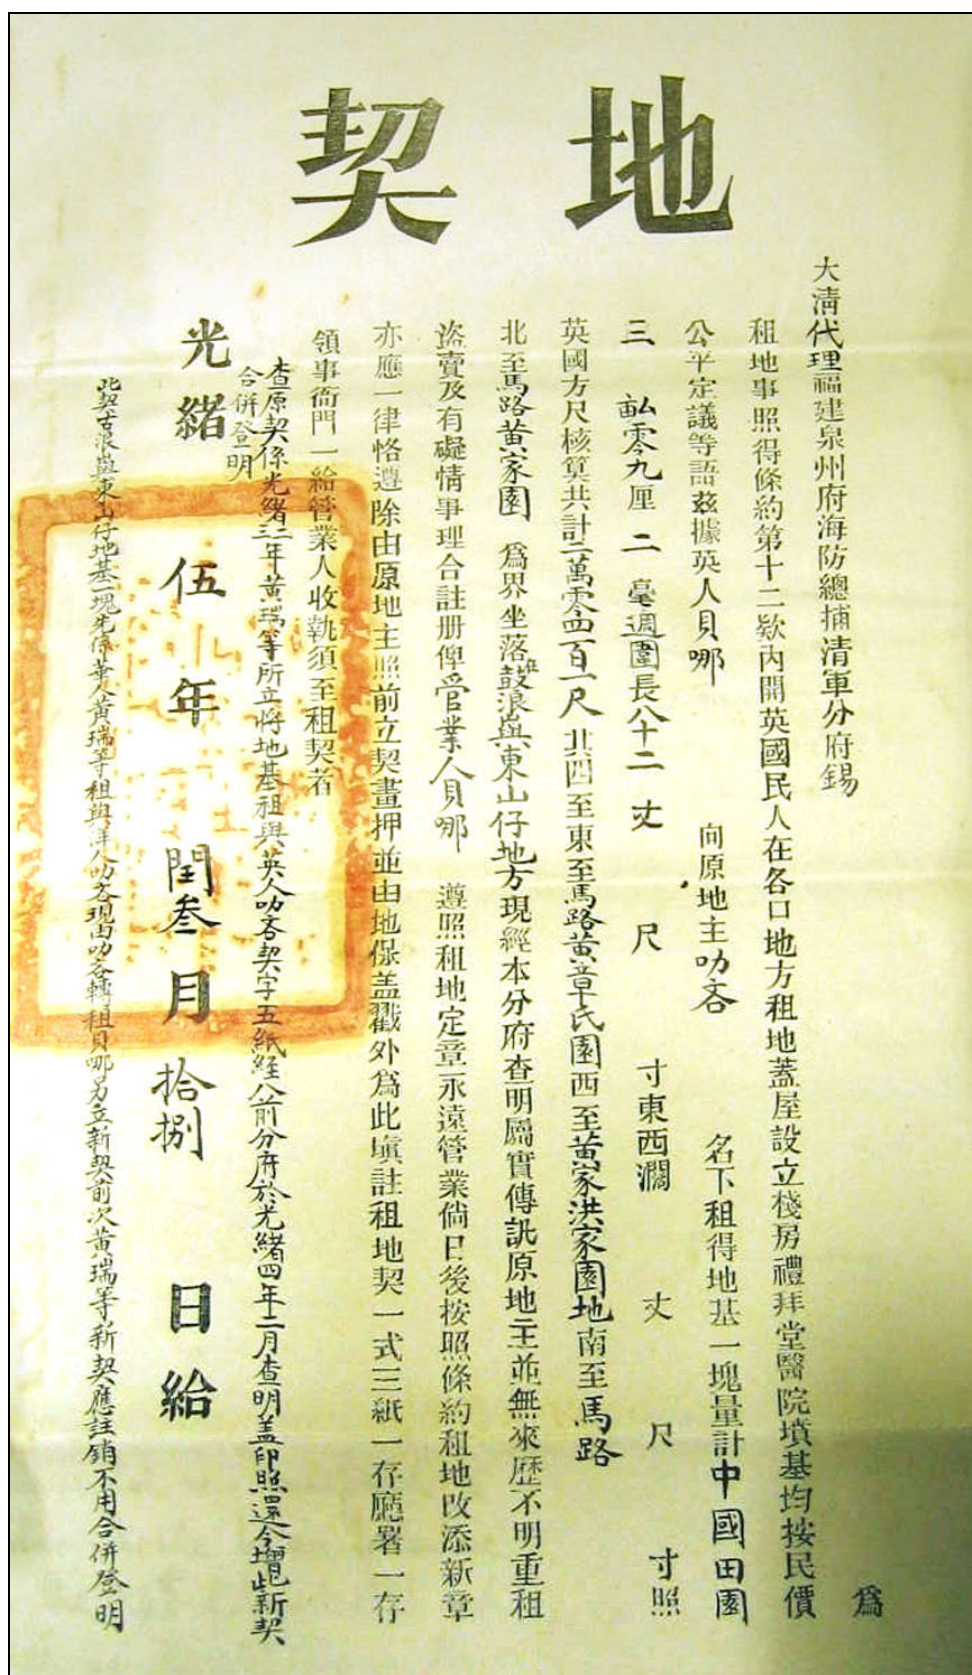 地契
大清代理福建泉州府海防總捕清軍分府錫 爲
租地事照得條約第十二欵內開英國民人在各口地方租地蓋屋設立棧房禮拜堂醫院墳基均按民價
公平定議等語茲據英人貝哪 向原地主叻吝 名下租得地基一塊量計中國田園
三 畝零九厘 二 毫週圍長八十二 丈 尺 寸東西濶 丈 尺 寸照
英國方尺核算共計二萬零四百一尺 北四至東至馬路黃章氏園西至黃家洪家園地南至馬路
北至馬路黃家園 爲界坐落鼓浪與東山仔地方現經本分府查明屬實傳訊原地主並無來歷不明重租
盜賣及有礙情事理合註册俾管業人貝哪 遵照租地定章永遠管業倘日後按照條約租地改添新章
亦應一律恪遵除由原地主照前立契畫押並由地保盖戳外爲此填註租地契一式三紙一存廳署一存
領事衙門一給管業人收執須至租契者
查原契係光緒三年黃瑞等所立將地基租與英人叻吝契字五紙經八前分府於光緒四年二月查明盖印照還今增此新契
合併登明
光緒 伍 年 閏叁 月 拾捌 日給
此契古浪與東山仔地基一塊先係業人黃瑞等租與洋人叻吝現由叻吝轉租貝哪另立新契前次黃瑞等新契應註銷不用合併登明